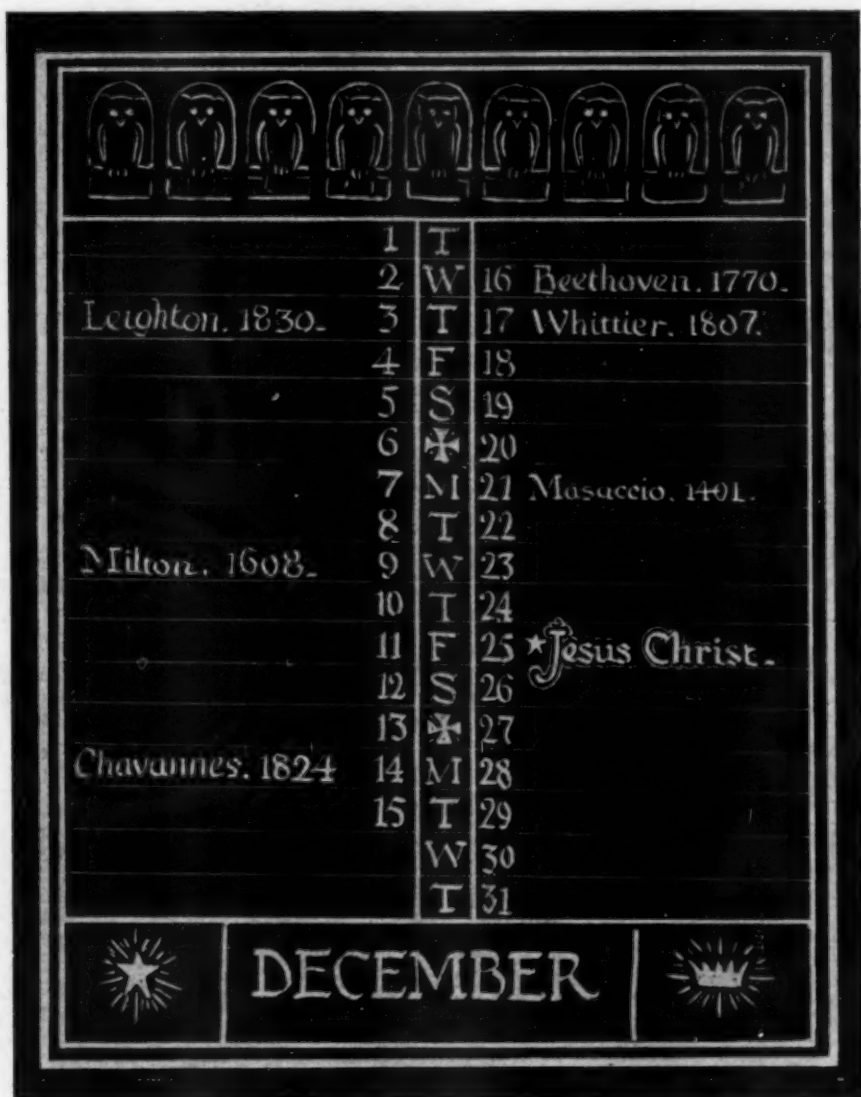 1 T
2 W 16 Beethoven. 1770.
Leighton. 1830. 3 T 17 Whittier. 1807.
4 F 18
5 S 19
6 ✠ 20
7 M 21 Masaccio. 1401.
8 T 22
Milton. 1608. 9 W 23
10 T 24
11 F 25 *Jesus Christ.
12 S 26
13 ✠ 27
Chavannes. 1824 14 M 28
15 T 29
W 30
T 31
DECEMBER